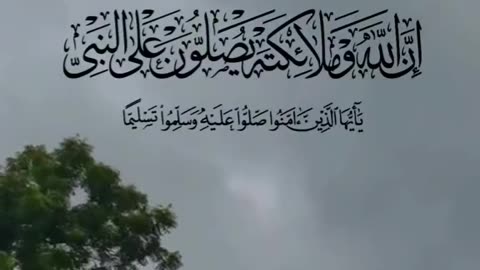 إِنَّ اللَّهَ وَمَلَائِكَتَهُ يُصَلُّونَ عَلَى النَّبِيِّ
يَا أَيُّهَا الَّذِينَ ءَامَنُوا صَلُّوا عَلَيْهِ وَسَلِّمُوا تَسْلِيمًا